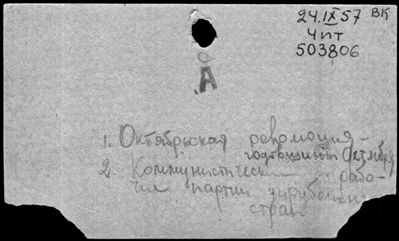 24.IX 57 ВК
Чпт
503806
А
1. Октябрьская революция -
годовщины Октября
2. Коммунистические рабо-
чие партии зарубежн.
стран